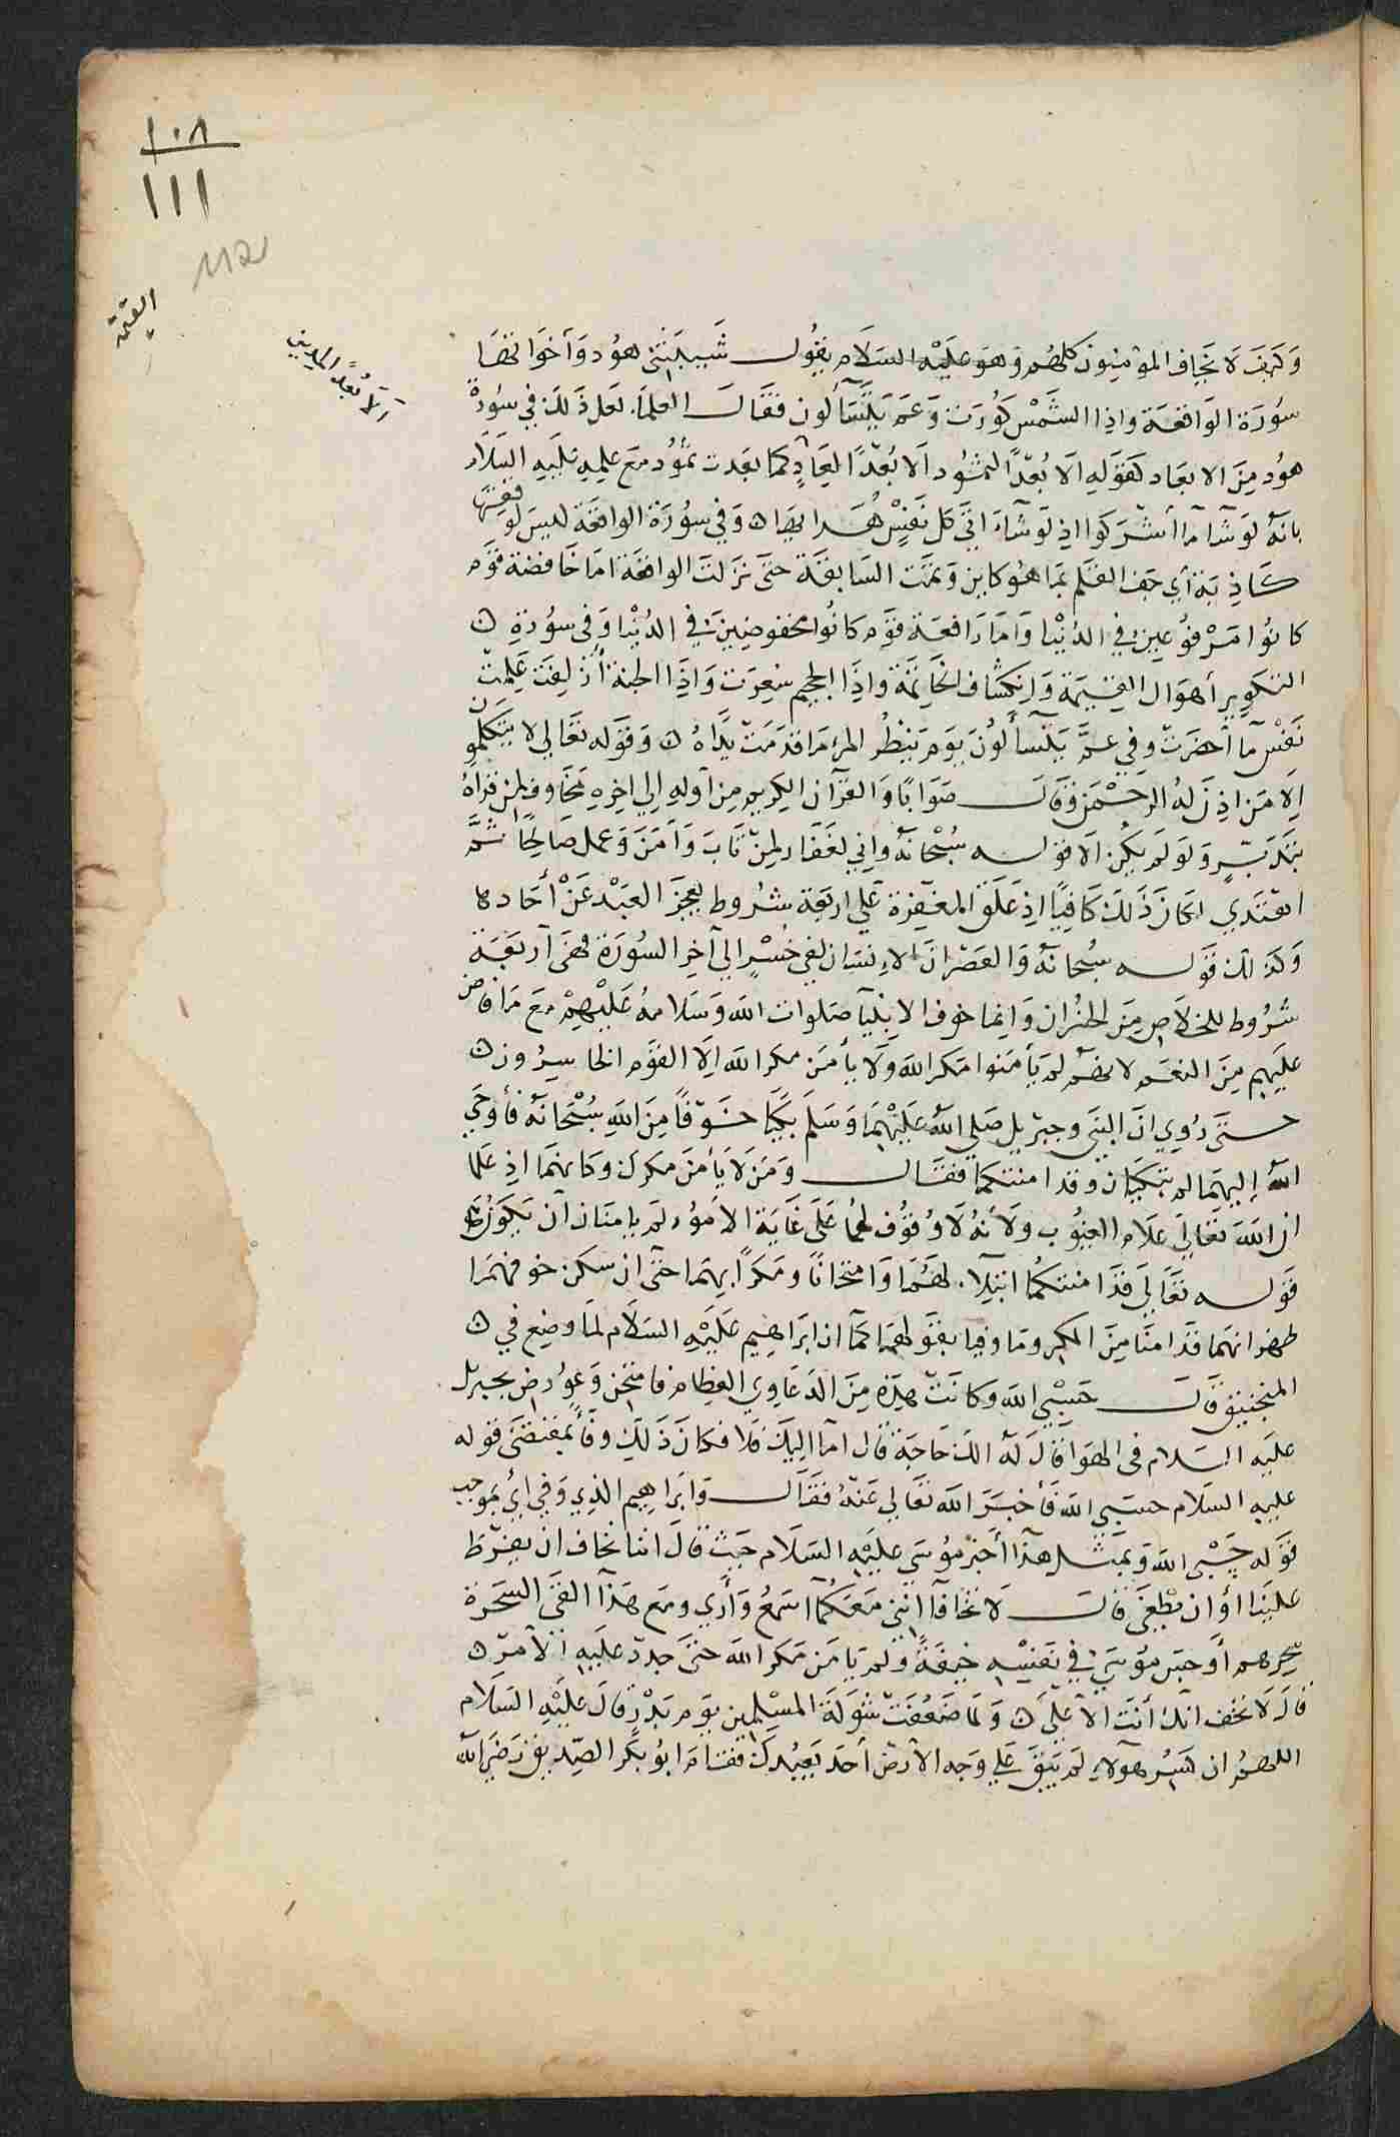 ١٠٨
١١١
112
القيمة
ألا بُعدًا لمدين
وَكيفَ لَا يَخاف المؤمِنونَ كلهُم وَهوَ عليْه السَلَام يقُول شَيبتنى هُود وَأخوَاتهَا
سُورَة الوَاقعَة واذِا الشَّمْس كَوُرَت وَعمَ يَتَسَآألون فقَالَ العلمآ، لعَل ذَلكَ في سُورَة
هوُد مِنَ الابعَاد كقوَلهِ الَا بُعْدًا لثمُود الَا بُعْدًا لعَادٍ كما بَعِدت ثمُود معَ علِمِهِ عليَهِ السَلَام
بانَهُ لوَ شَآ مَا أشْرَكوا اذِ لوَ شآءَ اتيَ كل نَفسٍ هُداهَا ن وَفي سوُرَة الواقعَة ليسَ لوقعتها
كَاذِبَة أي جَف القلَم بمَا هُو كاين وَتمَت السَابقَة حتىَ نزَلتَ الواقعَة امَا خَافضَة قوَم
كانوُا مَرْفوُعِين فِي الدُنْيَا وَامَا رَافعَة قوَم كانوُا مخفوضِين فِي الدُنيْا وَفي سوُرَة ن
التكوِير أهوَال القيَمَة وَانكشاف الخاتمَة واذَا الجحيم سُعِرَت وَاذِا الجنة أزلِفَت عَلِمَت
نَفسْ مآ أحْضَرَت وفي عمَّ يَتَسآألُونَ يَومَ ينظُر المرء مَا قدَمَت يَداهُ ن وَقوَله تعَالي لا يَتكلموُن
الِا مَن اذِنَ لهُ الرَحْمن وَقالَ صَوَابًا وَالقرآن الكرِيم مِن أولهِ الي اخِرهِ مخَاوف لمِن قرأهُ
بتَدَبّرٍ وَلوَ لمَ يَكُن الَا قوَله سُبْحانَهُ وانيِ لغَفَّار لمِن تَابَ وَآمَنَ وَعمل صَالِحًا ثمَّ
اهتَدي لكَانَ ذَلكَ كَافِيًا اذِ عَلقَ المغفِرَة عَلي اربَعَة شُروط يَعجَز العَبْد عَنْ أحَادهَا
وَكذَلكَ قوَله سُبحانَهُ وَالعَصْر انَ الانِسَان لفِي خُسْرٍ الي آخِر السُورَة فهَي أربَعَة
شُرُوط للخلَاص مِنَ الخُسْرَان وَانمَا خوف الانِبيَآ صَلوات الله وَسَلامهُ عَليَهِمْ معَ مَا فاض
عليَهِم مِنَ النعَم لانهُم لمَ يَأمَنوا مكر اللهَ وَلَا يأمَن مكر اللهَ الَا القوَم الخاسِرُون ن
حتىَ رُوِي انَ النبيَ وجبرِيل صَلي اللهُ عَليَهْمَا وَسَلم بَكيَا خوَفًا مِنَ اللهِ سُبْحَانَهُ فأوحَي
اللهُ إليَهِمَا لمَ تبكيَان وَقد امنتكمَا فقَالَا وَمَن لَا يأمنَ مكركَ وكانهَما اذِ علمَا
انَ اللهَ تعَالىَ علَام الغيُوب ولَأنهُ لَا وُقوُف لهمُا عَلىَ غَايَة الامُور لمَ يامنَان أن يَكوُن
قوَله تعَالىَ قدَ امنتكُما ابتِلَآء لهَمُا وَامتحَانًا ومَكرًا بهِمَا حتىَ ان سكن خوفهمَا
ظهر انهمَا قدَ امنَا مِنَ المَكر ومَا وفيا بقوَلهمَا كمَا ان ابرَاهِيم عَليَهِ السَلَام لمَا وضِع في ن
المنجنيق قَالَ حَسْبِي اللهَ وَكانَت هذِهِ مِنَ الدَعَاوِي العِظام فامتحِن وَعوُرض بجبريل
عليَهِ السَلام فى الهوَا قَالَ لهُ الكَ حَاجَة قال امَا اليِكَ فلَا فكانَ ذَلكَ وفَاً بمقتضىَ قوله
عليهِ السَلام حسبيِ اللهَ فَأخبَرَ اللهَ تعَالي عَنهُ فقَالَ وَابرَاهِيم الذِي وَفيَ أي بموجب
قوَله حَسْبي اللهَ وَبمثل هذَا أخبرَ مُوسَى عليَهِ السَلام حَيثْ قالَ اننا نخَاف ان يفرُط
عليَنَا اؤ ان يَطغىَ قالَ لَا تخَافآ إنني مَعَكمُآ اسْمَعُ وَأري ومَع هَذَآ القىَ السَحَرَة
سِحرهم أوَجسَ مُوسَيَ في نفسِهِ خِيفَةً وَلمَ يامَن مَكر اللهَ حتىَ جدد عليَهِ الامَن ن
قالَ لَا تخف انكَ أنتَ الاعَلي ن وَلمَا ضَعُفَت شوَكة المسْلِمِين يوَم بَدْرٍ قالَ عَليَهْ السَلام
اللهُمَ ان تهَلك هؤلآءِ لمَ يَبقَ عَلي وَجه الارض أحَد يَعبُدكَ فقَامَ ابوُ بَكر الصِّديق رَضِيَ اللهُ